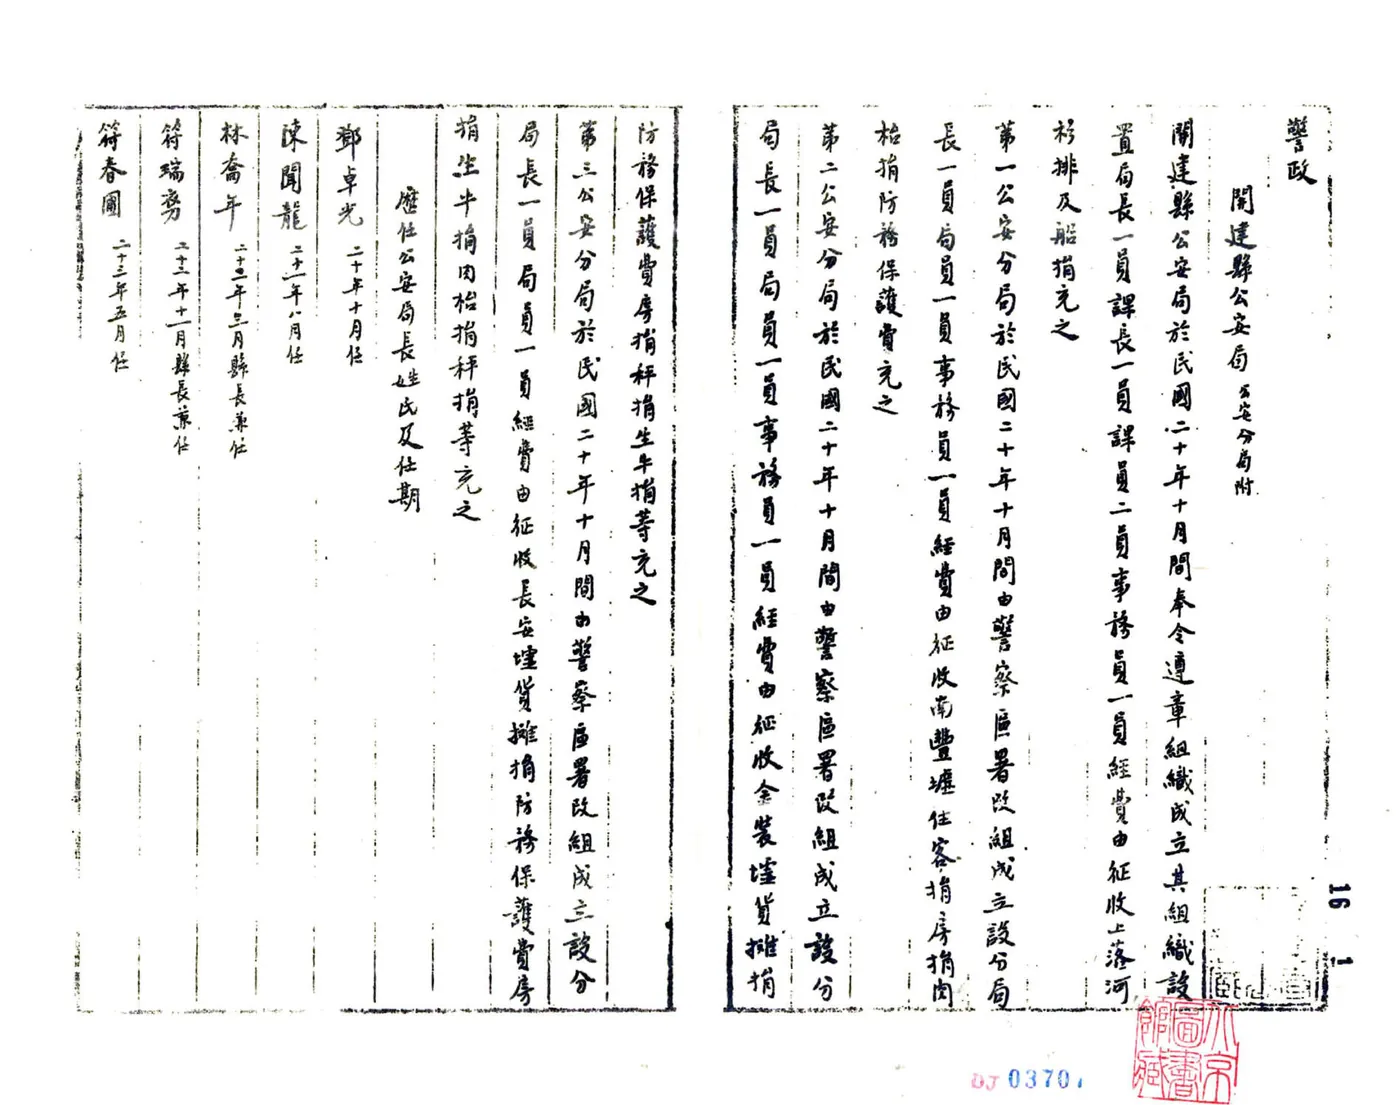 警政
開建縣公安局 公安分局附
開建縣公安局於民國二十年十月間奉令遵章組織成立其組織設
置局長一員課長一員課員二員事務員一員經費由征收上落河
杉排及船捐充之
第一公安分局於民國二十年十月間由警察區署改組成立設分局
長一員局員一員事務員一員經費由征收南豐墟住客捐房捐肉
枱捐防務保護費充之
第二公安分局於民國二十年十月間由警察區署改組成立設分
局長一員局員一員事務員一員經費由征收金裝墟貨攤捐
防務保護費房捐秤捐生牛捐等充之
第三公安分局於民國二十年十月間由警察區署改組成立設分
局長一員局員一員經費由征收長安墟貨攤捐防務保護費房
捐生牛捐肉枱捐秤捐等充之
歷任公安局長姓氏及任期
鄧卓光 二十年十月任
陳聞龍 二十一年八月任
林喬年 二十二年三月縣長兼任
符瑞 二十二年十一月縣長兼任
符春圃 二十三年五月任
16
1
DJ 03701
圖書館藏